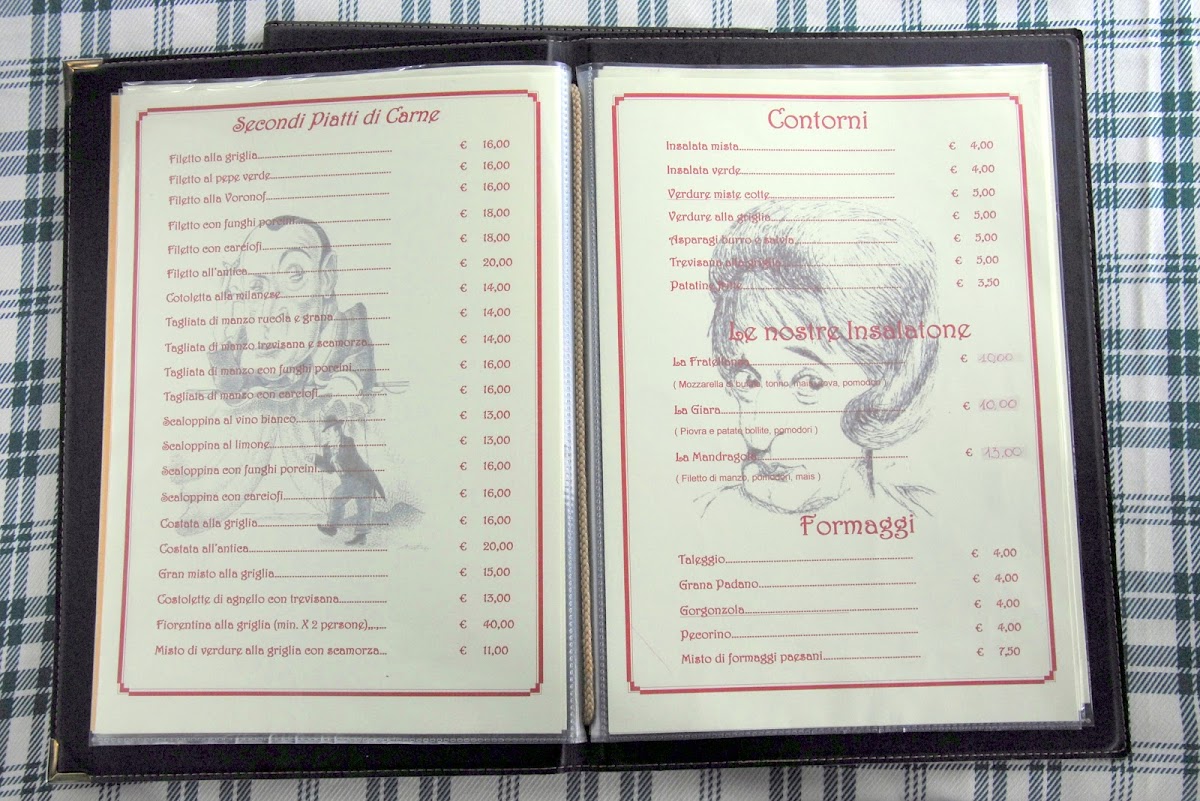 Secondi Piatti di Carne
Filetto alla griglia € 16,00
Filetto al pepe verde € 16,00
Filetto alla Voronof € 16,00
Filetto con funghi porcini € 18,00
Filetto con carciofi € 18,00
Filetto all'antica € 20,00
Cotoletta alla milanese € 14,00
Tagliata di manzo rucola e grana € 14,00
Tagliata di manzo trevisana e scamorza € 14,00
Tagliata di manzo con funghi porcini € 16,00
Tagliata di manzo con carciofi € 16,00
Scaloppina al vino bianco € 13,00
Scaloppina al limone € 13,00
Scaloppina con funghi porcini € 16,00
Scaloppina con carciofi € 16,00
Costata alla griglia € 16,00
Costata all'antica € 20,00
Gran misto alla griglia € 15,00
Costolette di agnello con trevisana € 13,00
Fiorentina alla griglia (min. X 2 persone) € 40,00
Misto di verdure alla griglia con scamorza € 11,00
Contorni
Insalata mista € 4,00
Insalata verde € 4,00
Verdure miste cotte € 5,00
Verdure alla griglia € 5,00
Asparagi burro e salvia € 5,00
Trevisana alla griglia € 5,00
Patatine fritte € 3,50
Le nostre Insalatone
La Fratellanza € 10,00
( Mozzarella di bufala, tonno, mais, uova, pomodori )
La Giara € 10,00
( Piovra e patate bollite, pomodori )
La Mandragola € 13,00
( Filetto di manzo, pomodori, mais )
Formaggi
Taleggio € 4,00
Grana Padano € 4,00
Gorgonzola € 4,00
Pecorino € 4,00
Misto di formaggi paesani € 7,50